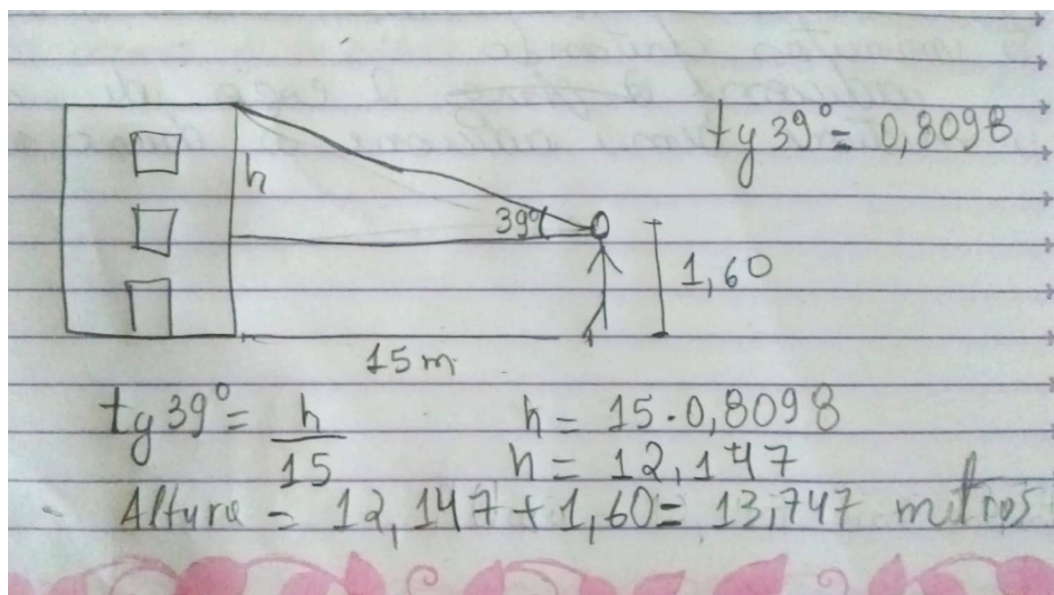 tg 39° = 0,8098
h
39°
1,60
15 m
tg 39° = h/15
h = 15 · 0,8098
h = 12,147
Altura = 12,147 + 1,60 = 13,747 metros